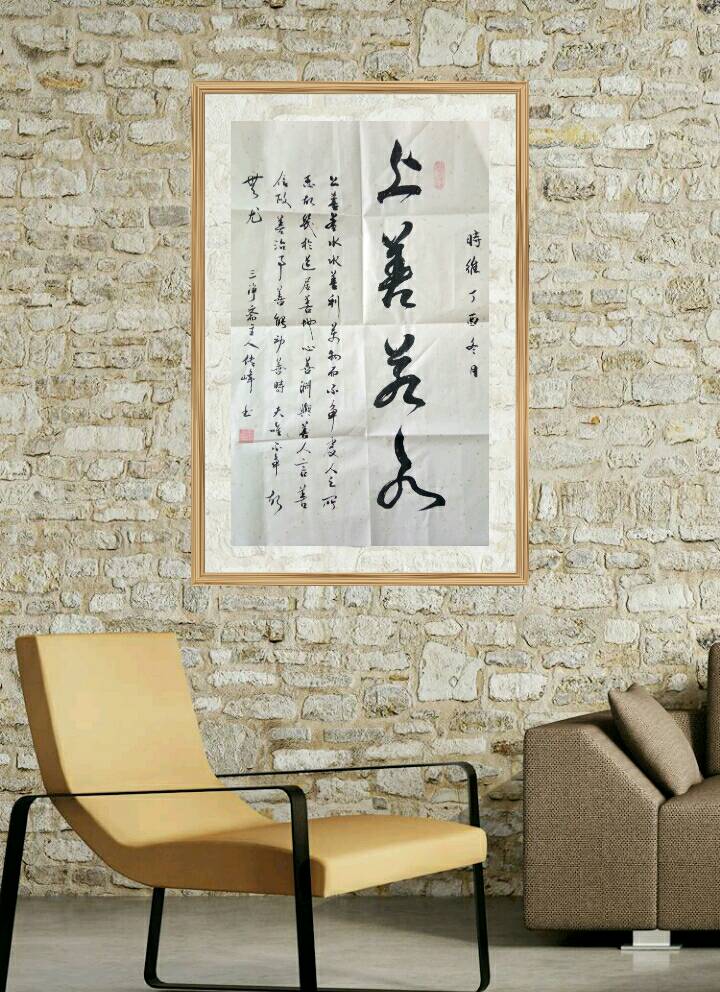 時維丁酉冬月
上善若水
上善若水水善利萬物而不爭處人之所
惡故幾於道居善地心善淵與善人言善
信政善治事善能動善時夫唯不爭故
無尤 三淨齋主人峰書